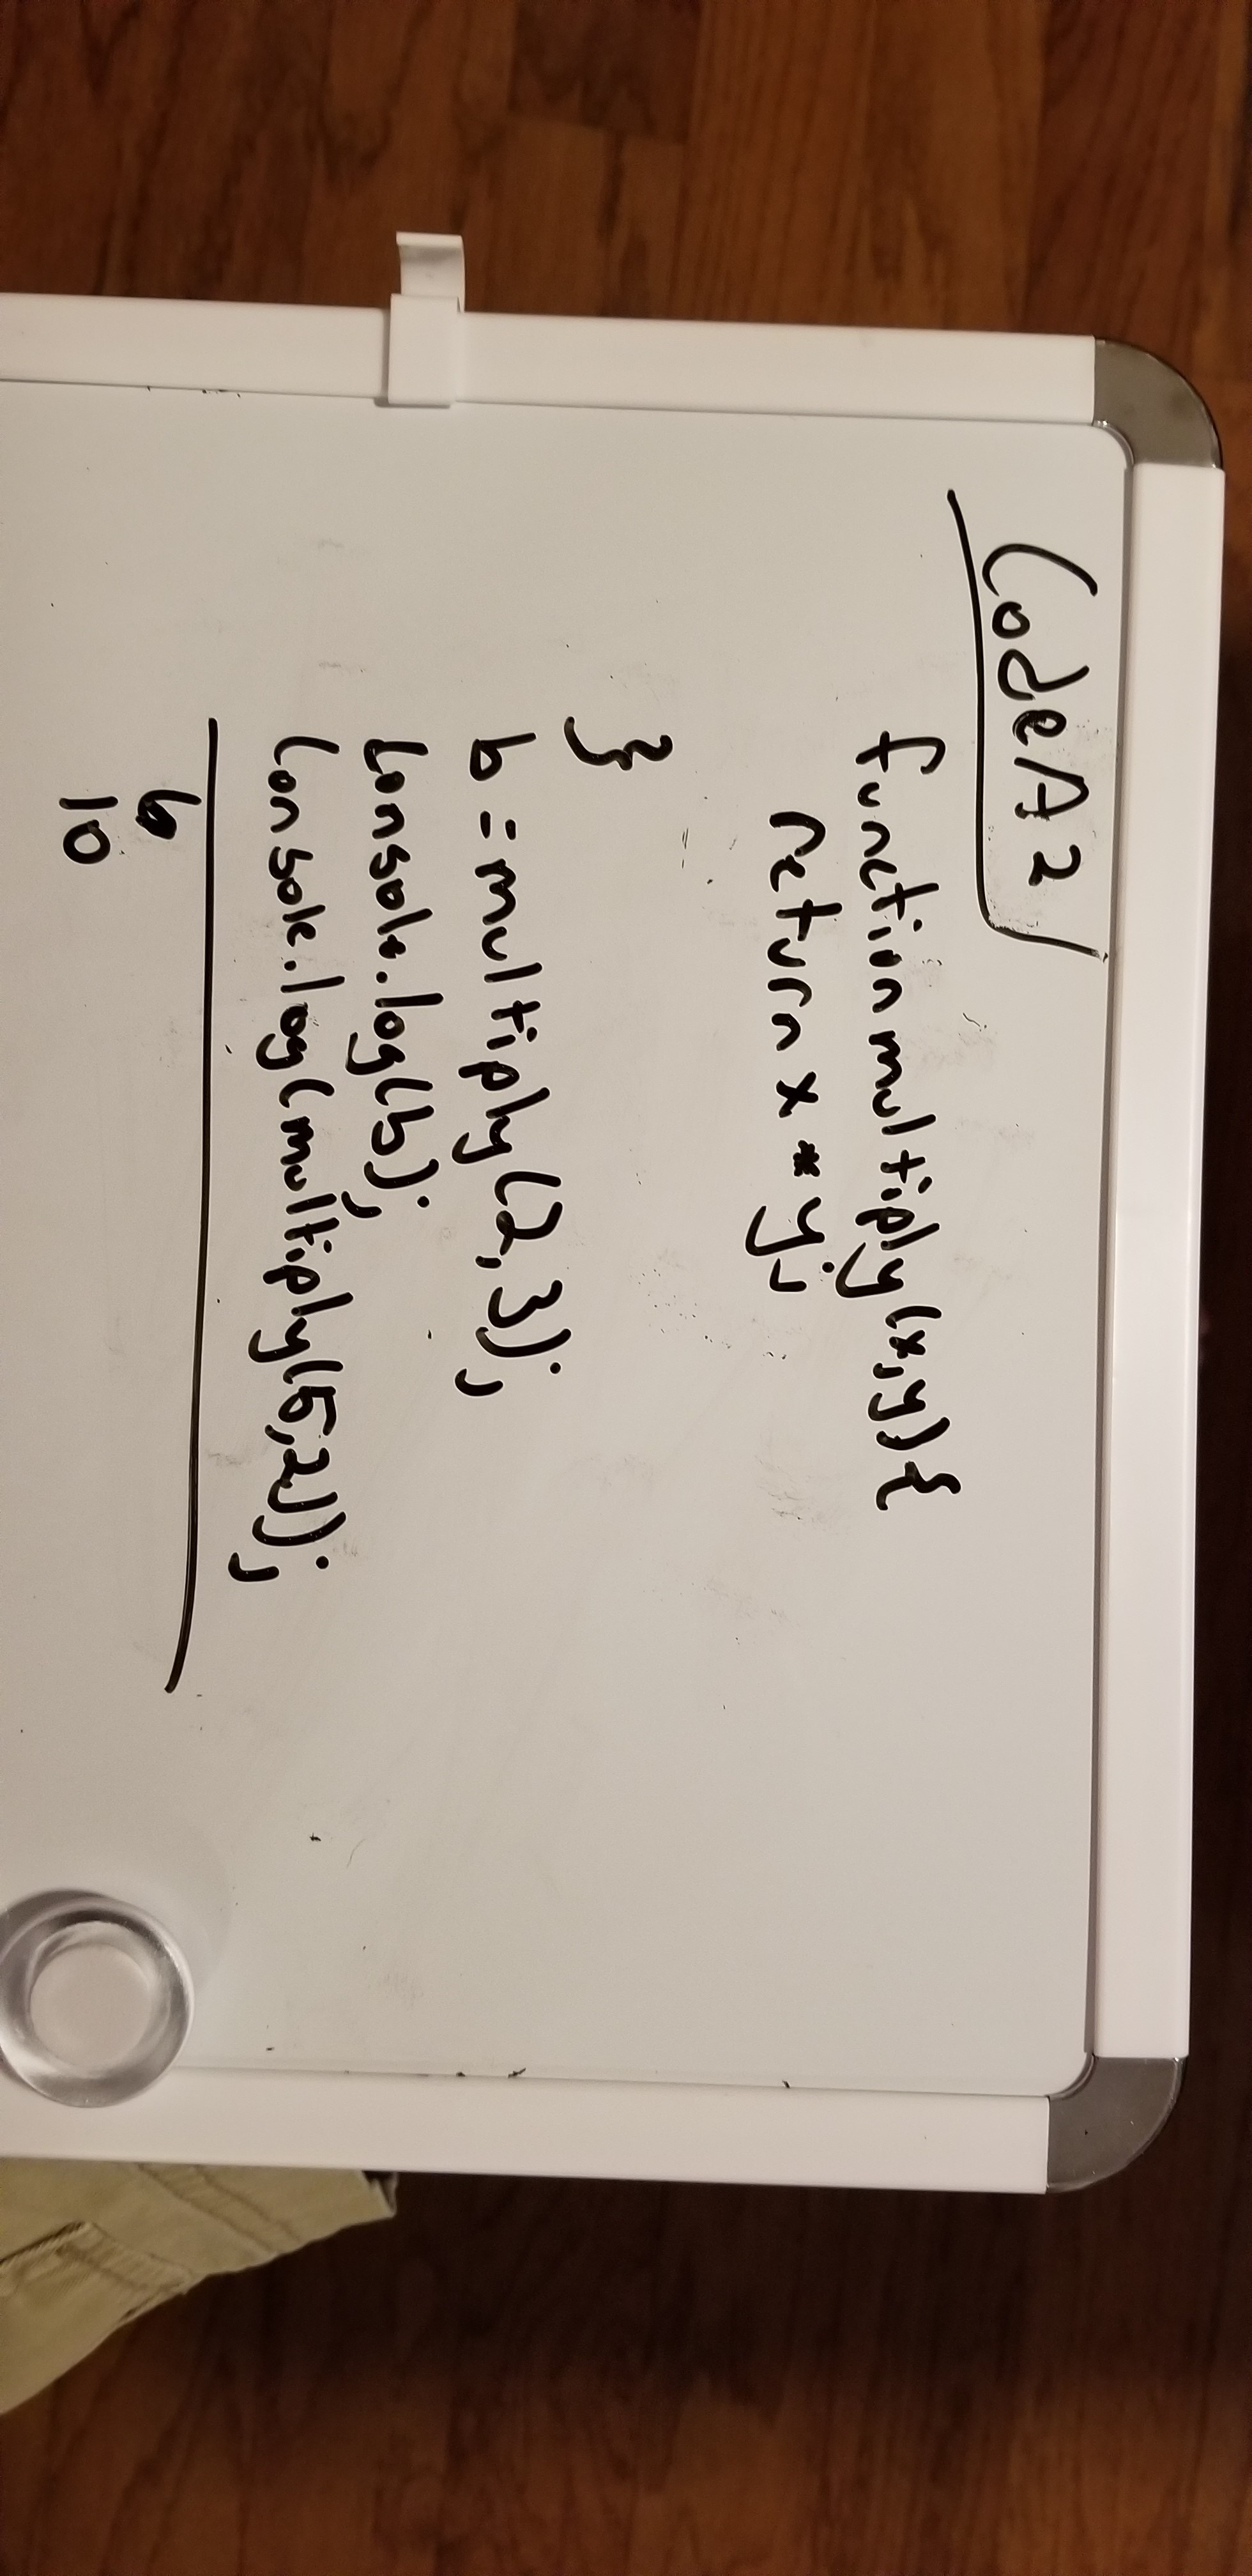 Code A 2
function multiply(x,y){
return x * y;
}
b = multiply(2,3);
console.log(b);
console.log(multiply(5,2));
6
10